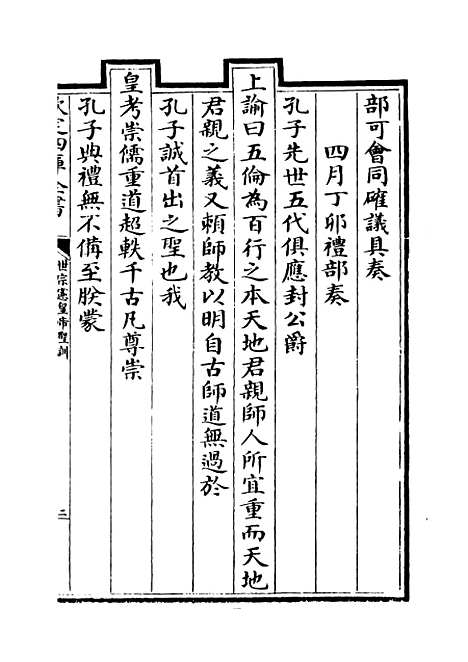 部可會同確議具奏
四月丁卯禮部奏
孔子先世五代俱應封公爵
上諭曰五倫為百行之本天地君親師人所宜重而天地
君親之義又賴師教以明自古師道無過於
孔子誠首出之聖也我
皇考崇儒重道超軼千古凡尊崇
孔子典禮無不備至朕蒙
欽定四庫全書
世宗憲皇帝聖訓
三